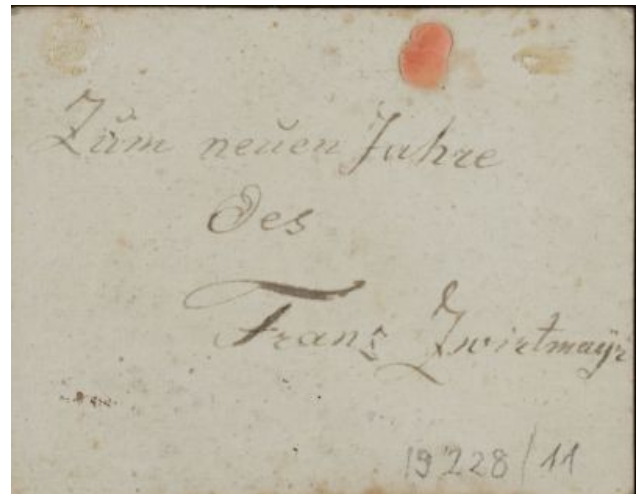 Zum neuen Jahre
Des
Franz Zwirtmaÿr
19228/11